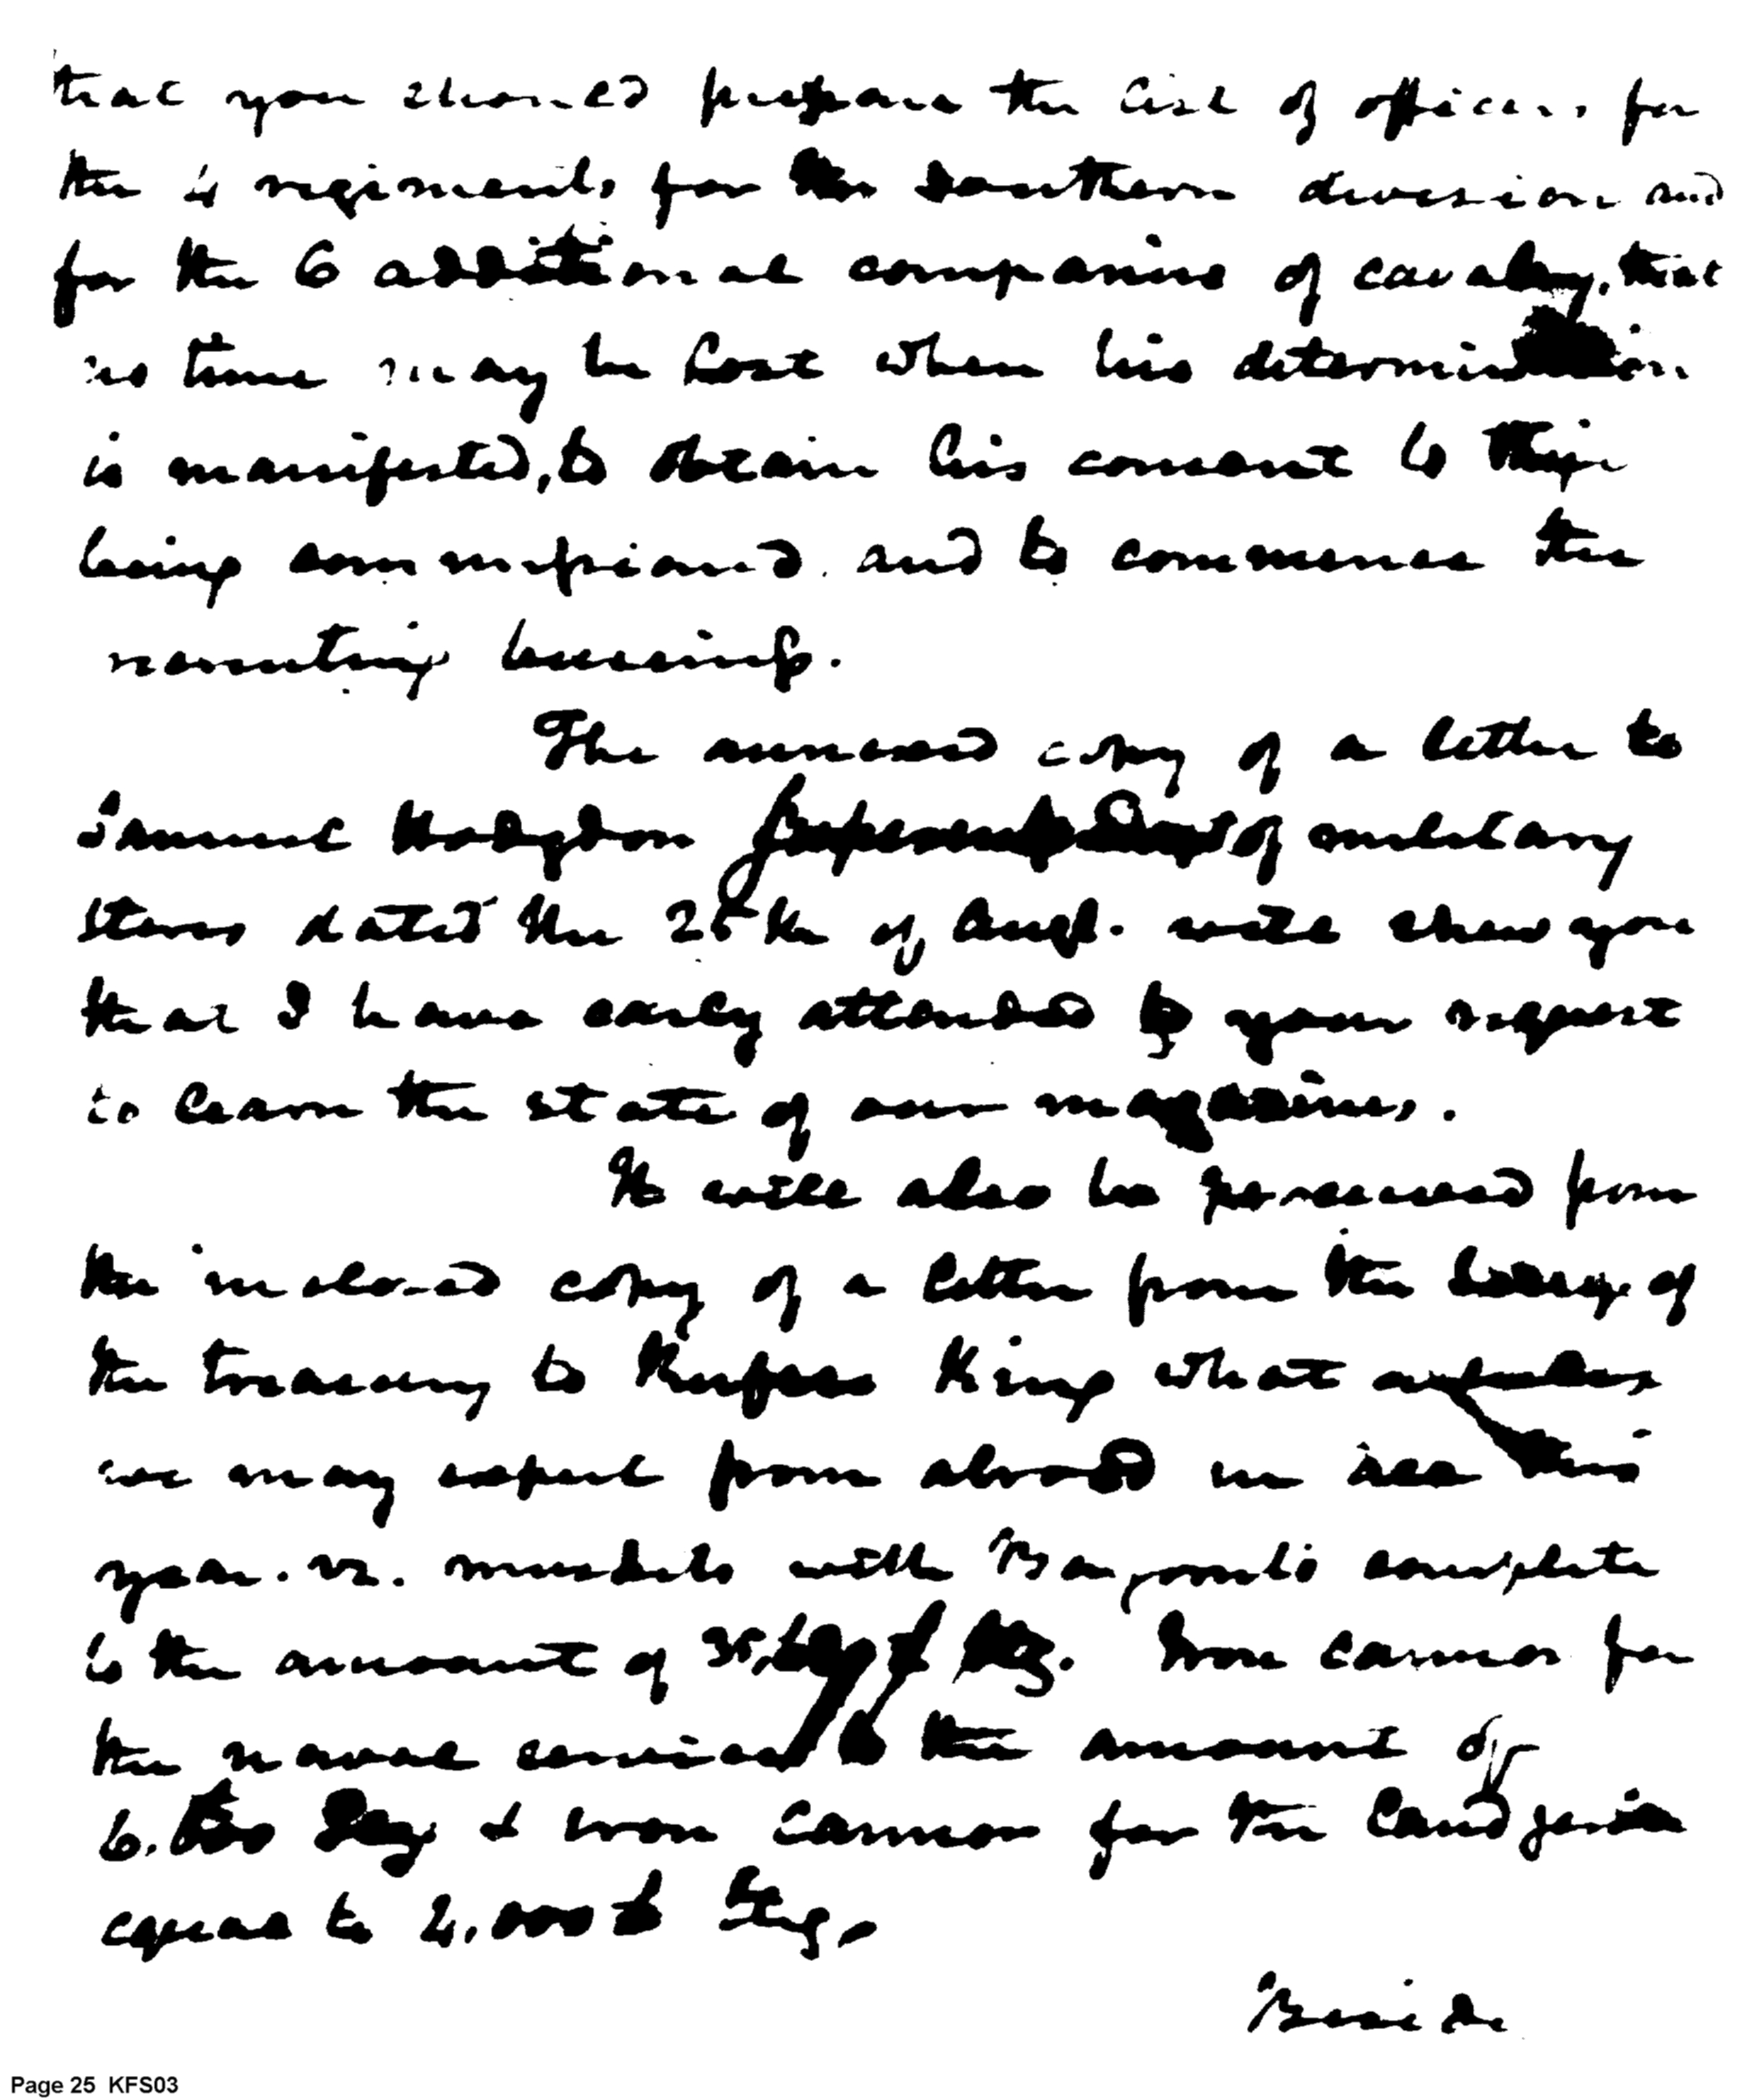 that you should prepare the list of officers for
the 4 regiments for the southern division and
for the 6 additional companies of cavalry, that
no time may be lost when his determination
is manifested, to obtain his consent to their
being commissioned. and to commence the
recruiting business.
The annexed copy of a letter to
Samuel Hodgdon Superintendant of military
stores dated the 25th of Augt. will shew you
that I have early attended to your request
to learn the state of our magazines.
It will also be perceived from
the inclosed copy of a letter from the Secry. of
the treasury to Rufus King what supplies
we may expect from abroad in all this
year. vz. muskets with Bayonets complete
to the amount of Stg. Iron cannon for
the naval service to the amount of
6. Stg & iron cannon for the land service
equal to 4,000 £ Stg.
Beside